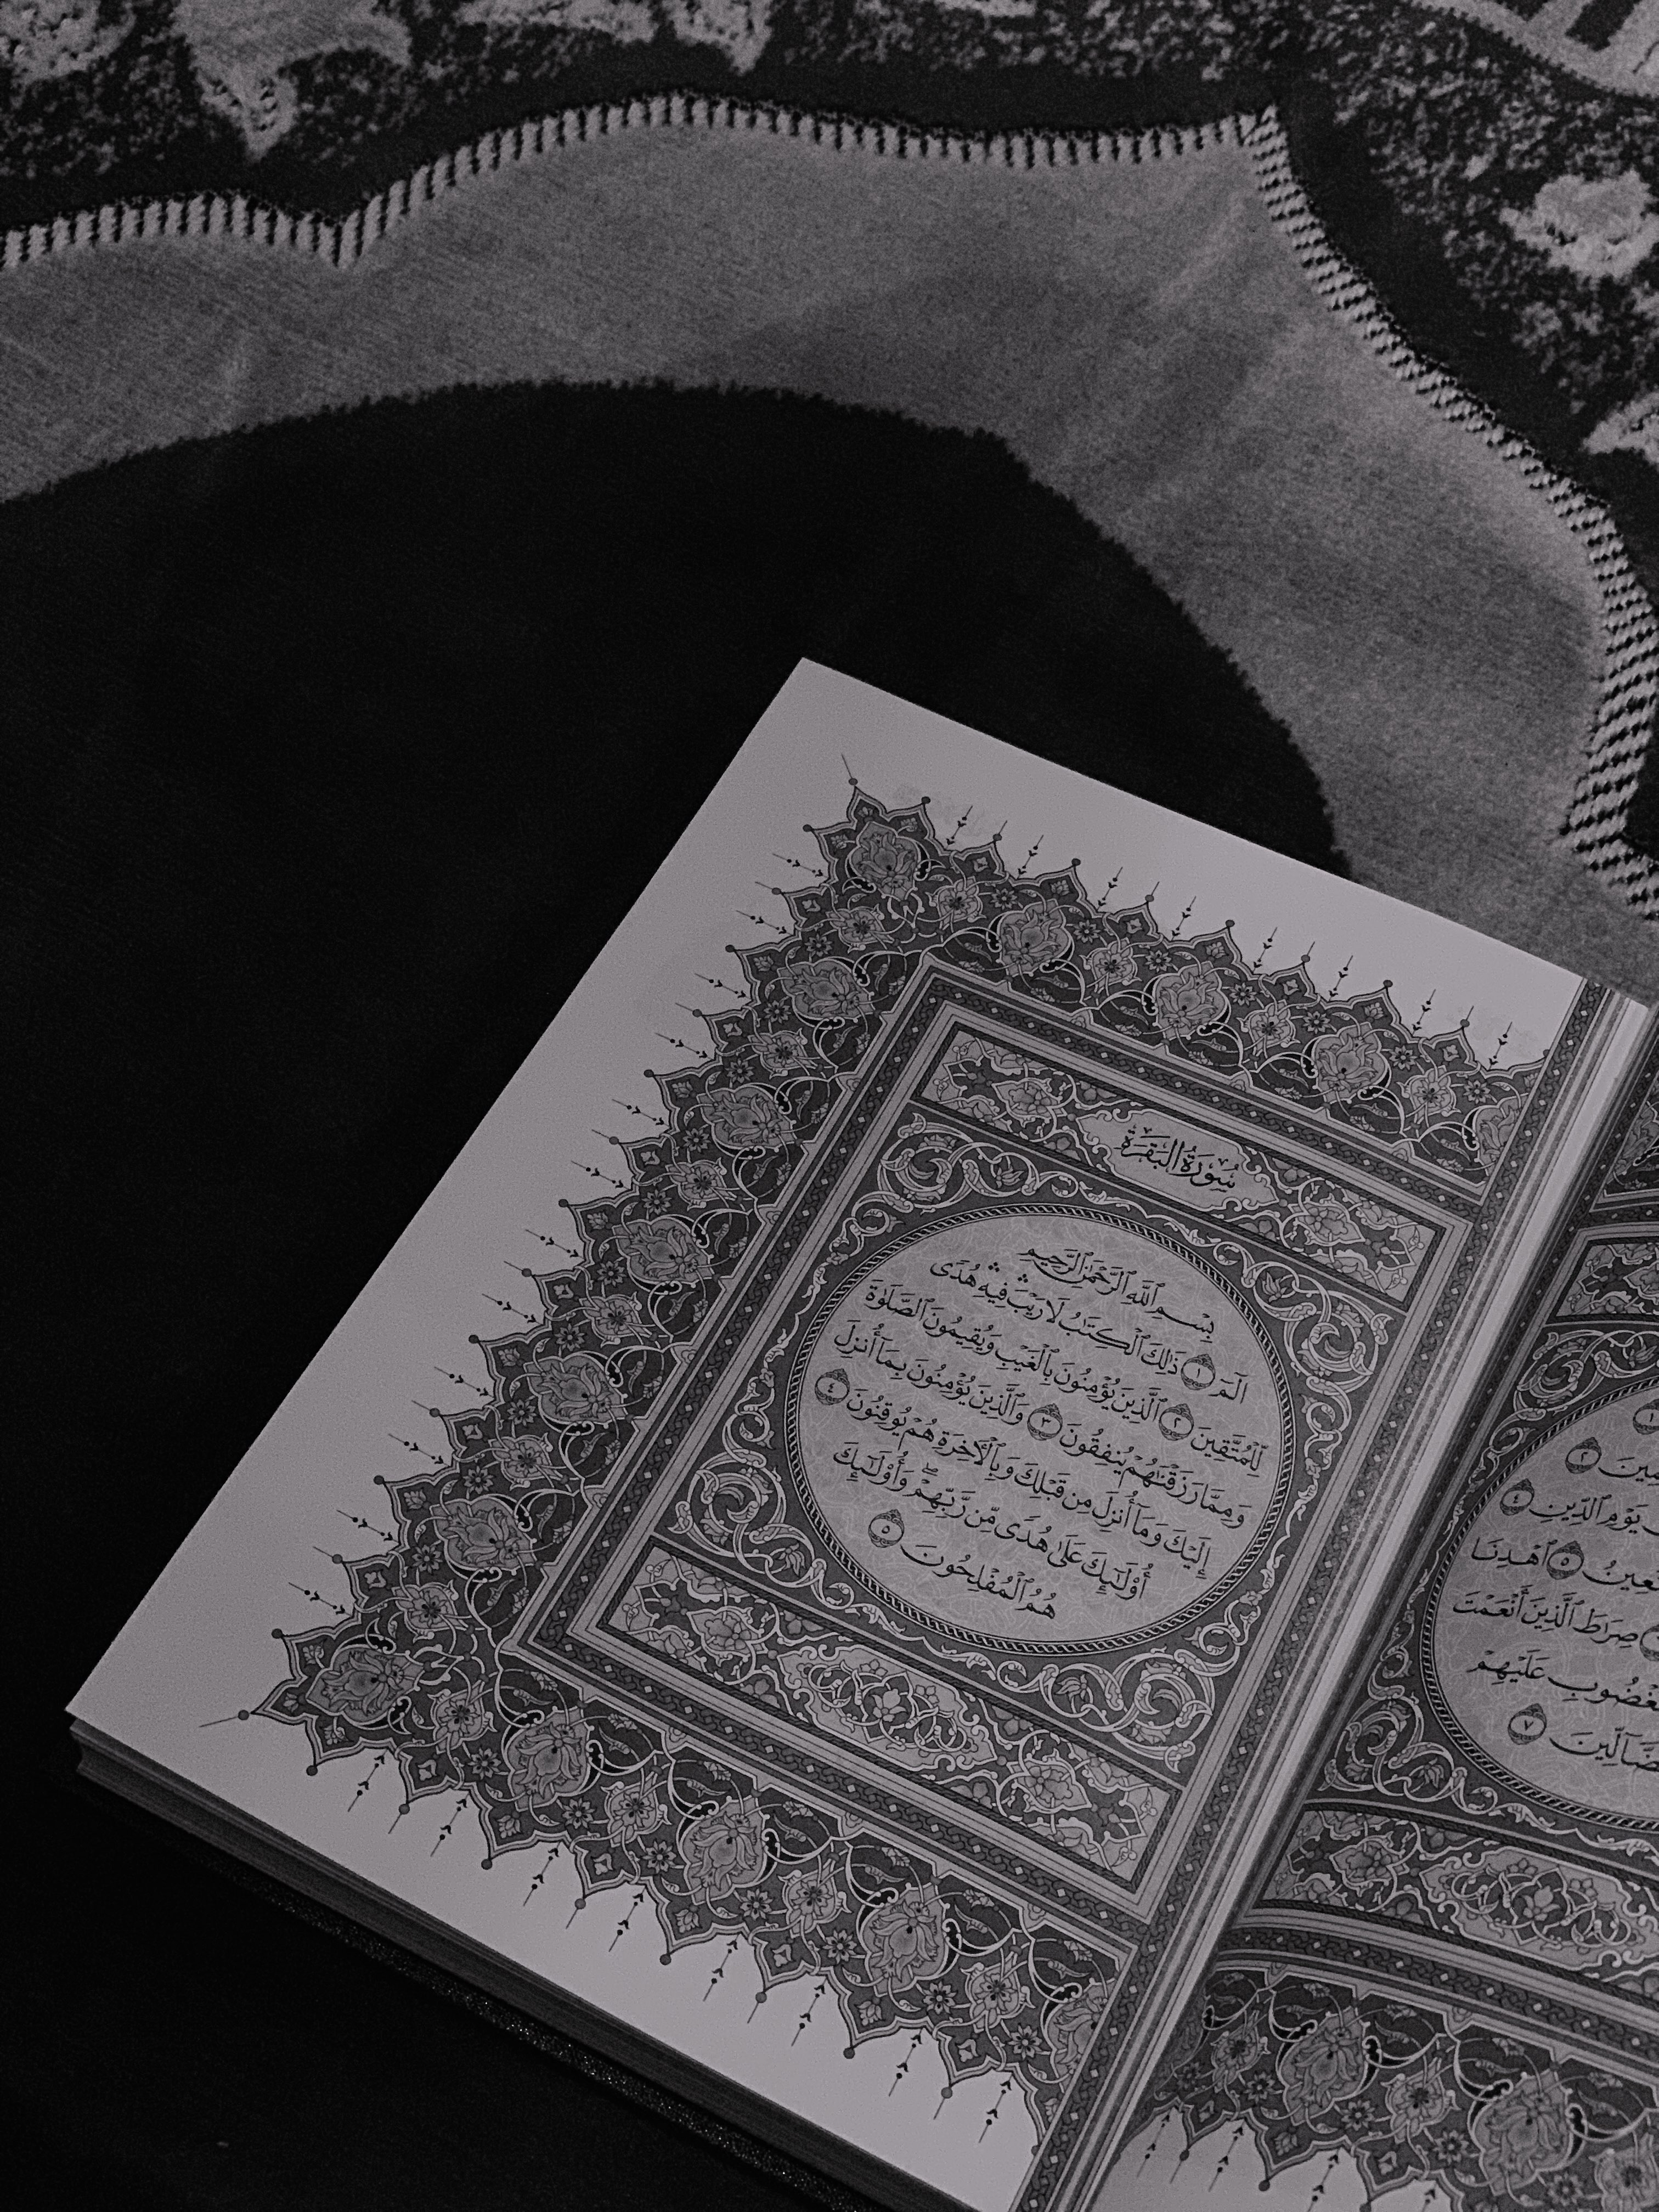 ١
٢
يَوْمِ ٱلدِّينِ ٤
٥ ٱهْدِنَا
صِرَٰطَ ٱلَّذِينَ أَنْعَمْتَ
عَلَيْهِمْ
٧
سُورَةُ البَقَرَةِ
بِسْمِ ٱللَّهِ ٱلرَّحْمَٰنِ ٱلرَّحِيمِ
الٓمٓ ١ ذَٰلِكَ ٱلْكِتَٰبُ لَا رَيْبَۛ فِيهِۛ هُدًى
لِّلْمُتَّقِينَ ٢ ٱلَّذِينَ يُؤْمِنُونَ بِٱلْغَيْبِ وَيُقِيمُونَ ٱلصَّلَوٰةَ
وَمِمَّا رَزَقْنَٰهُمْ يُنفِقُونَ ٣ وَٱلَّذِينَ يُؤْمِنُونَ بِمَآ أُنزِلَ
إِلَيْكَ وَمَآ أُنزِلَ مِن قَبْلِكَ وَبِٱلْأٓخِرَةِ هُمْ يُوقِنُونَ ٤
أُو۟لَٰٓئِكَ عَلَىٰ هُدًى مِّن رَّبِّهِمْۖ وَأُو۟لَٰٓئِكَ
هُمُ ٱلْمُفْلِحُونَ ٥